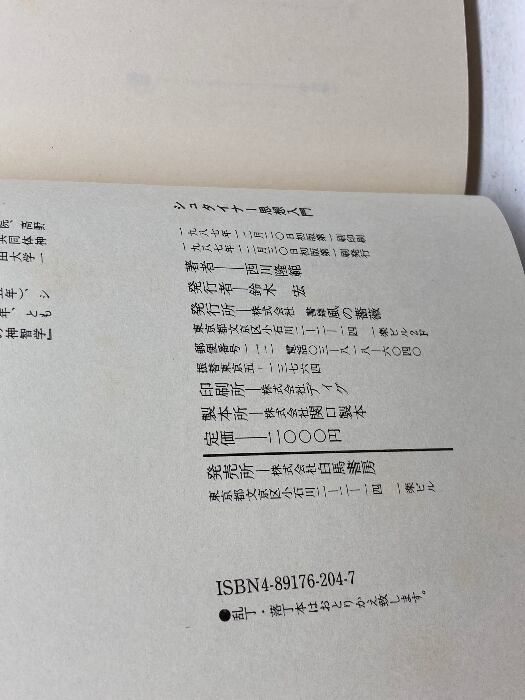 シュタイナー思想入門
一九八七年一二月一〇日初版第一刷印刷
一九八七年一二月二〇日初版第一刷発行
著者——西川隆範
発行者——鈴木 宏
発行所——株式会社 書肆風の薔薇
東京都文京区小石川二—二—一四 一楽ビル2F
郵便番号一一二 電話〇三—八一八—六〇四〇
振替東京五—一三七六四
印刷所—株式会社ディグ
製本所—株式会社関口製本
定価——二〇〇〇円
発売所—株式会社白馬書房
東京都文京区小石川二—二—一四 一楽ビル
ISBN4-89176-204-7
●乱丁・落丁本はおとりかえ致します。
高野
共同体神
田大学一
年)、シ
年、とも
の神智学』